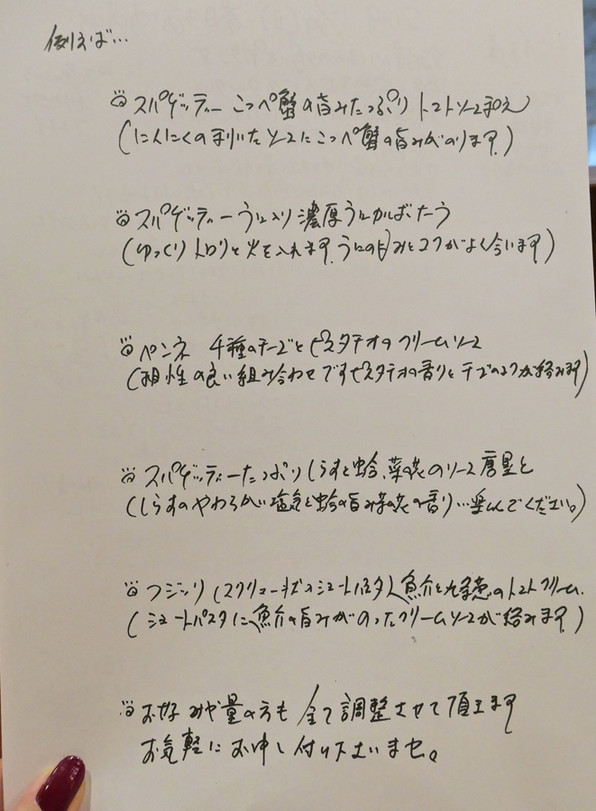 例えば…
スパゲッティー こっぺ蟹の旨みたっぷり トマトソース和え
(にんにくの利いたソースにこっぺ蟹の旨みがのります)
スパゲッティーうに入り濃厚うにかルボナーラ
(ゆっくりトロリと火を入れます。うにの甘みとコクがよく合います)
ペンネ 4種のチーズとピスタチオのクリームソース
(相性の良い組み合わせですピスタチオの香りとチーズのコクが絡みます)
スパゲッティーたっぷりしらすと蛤、菜の花のソース 唐墨と
(しらすのやわらかい塩気と蛤の旨み菜の花の香り…楽しんでください。)
フジッリ(スクリュー状のショートパスタ)魚介と九条葱のトマトクリーム.
(ショートパスタに魚介の旨みがのったクリームソースが絡みます)
お好みや量の方も全て調整させて頂きます
お気軽にお申し付け下さいませ。